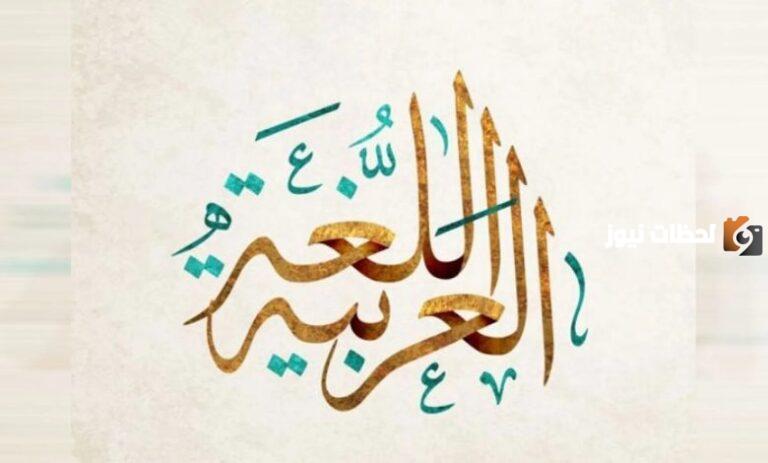 اللغة
العربية
لحظات نيوز